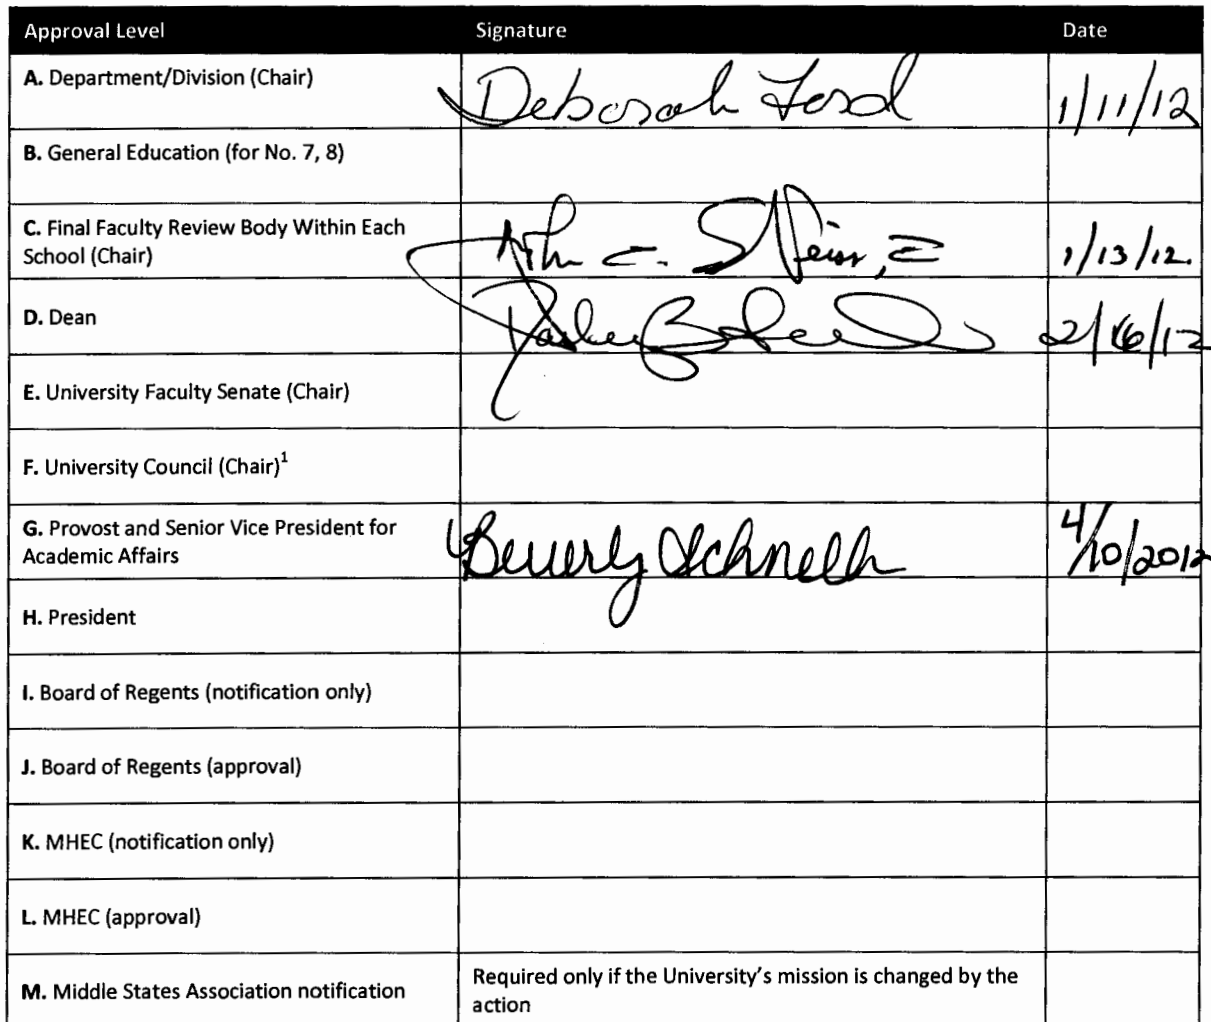 Approval Level Signature Date
A. Department/Division (Chair) Deborah Ford 1/11/12
B. General Education (for No. 7, 8)
C. Final Faculty Review Body Within Each
School (Chair) John C. Weiss, 1/13/12.
D. Dean 2/16/12
E. University Faculty Senate (Chair)
F. University Council (Chair)1
G. Provost and Senior Vice President for
Academic Affairs Beverly Schnell 4/10/2012
H. President
I. Board of Regents (notification only)
J. Board of Regents (approval)
K. MHEC (notification only)
L. MHEC (approval)
M. Middle States Association notification Required only if the University's mission is changed by the
action